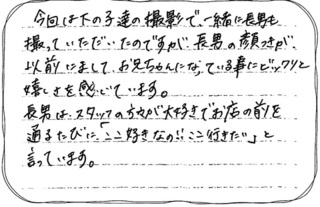 今回は下の子達の撮影で、一緒に長男も
撮っていただいたのですが、長男の顔つきが、
以前にまして、お兄ちゃんになっている事にビックリと
嬉しさを感じています。
長男は、スタッフの方々が大好きでお店の前を
通るたびに、「ここ好きなの!!ここ行きたい」と
言っています。